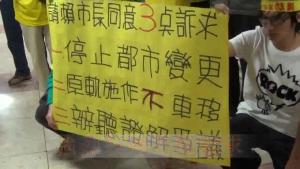 請賴市長同意3点訴求
一停止都市變更
二原軌施作不東移
三辦聽證解爭議
ROCK